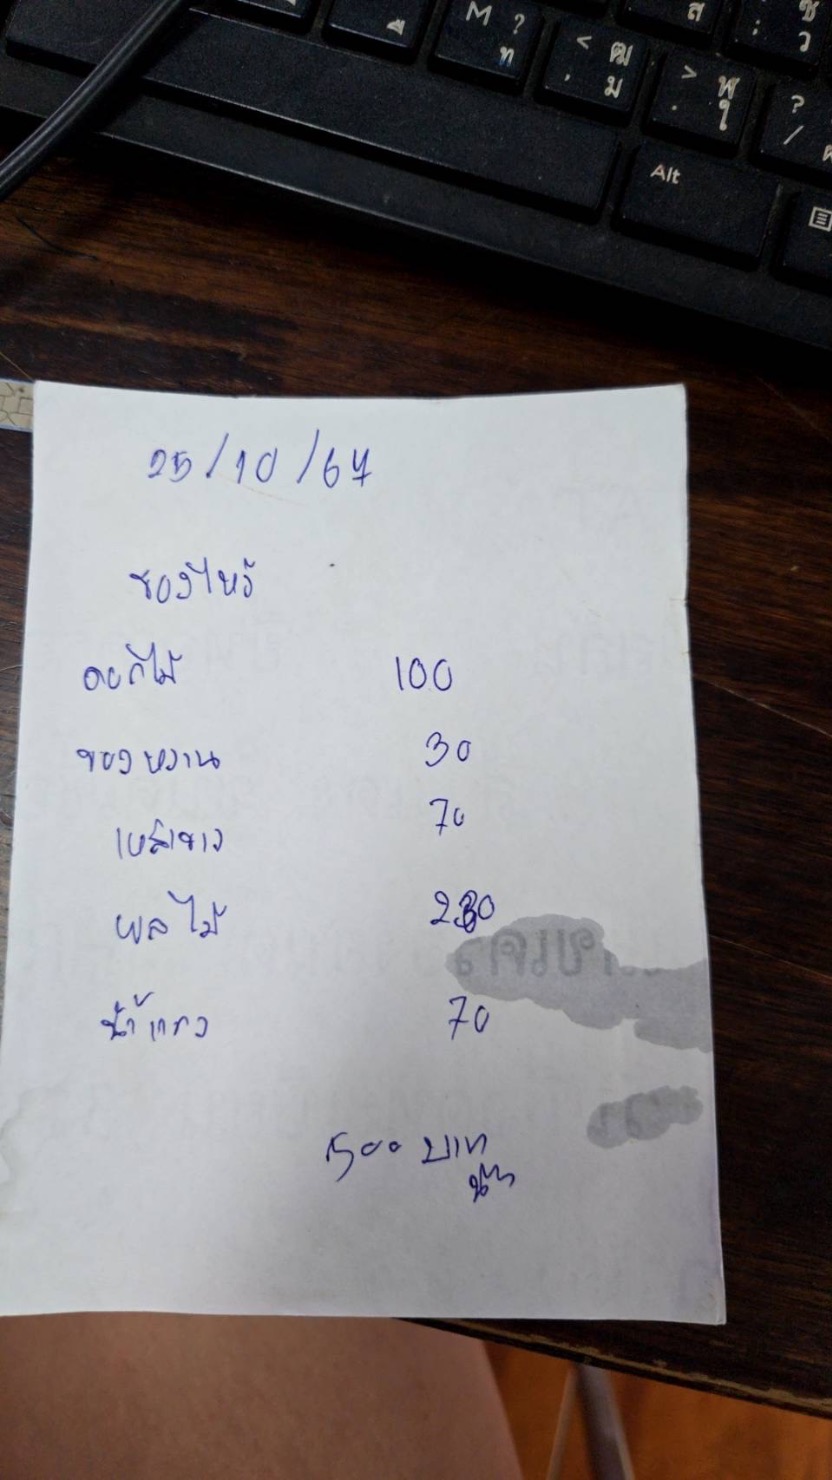 M ? ท
ส
ซ ว
< , ฒ ม
> . ฬ ใ
? /
Alt
25/10/67
ของไหว้
ดอกไม้ 100
ของหวาน 30
เหล้าขาว 70
ผลไม้ 230
น้ำแดง 70
500 บาท